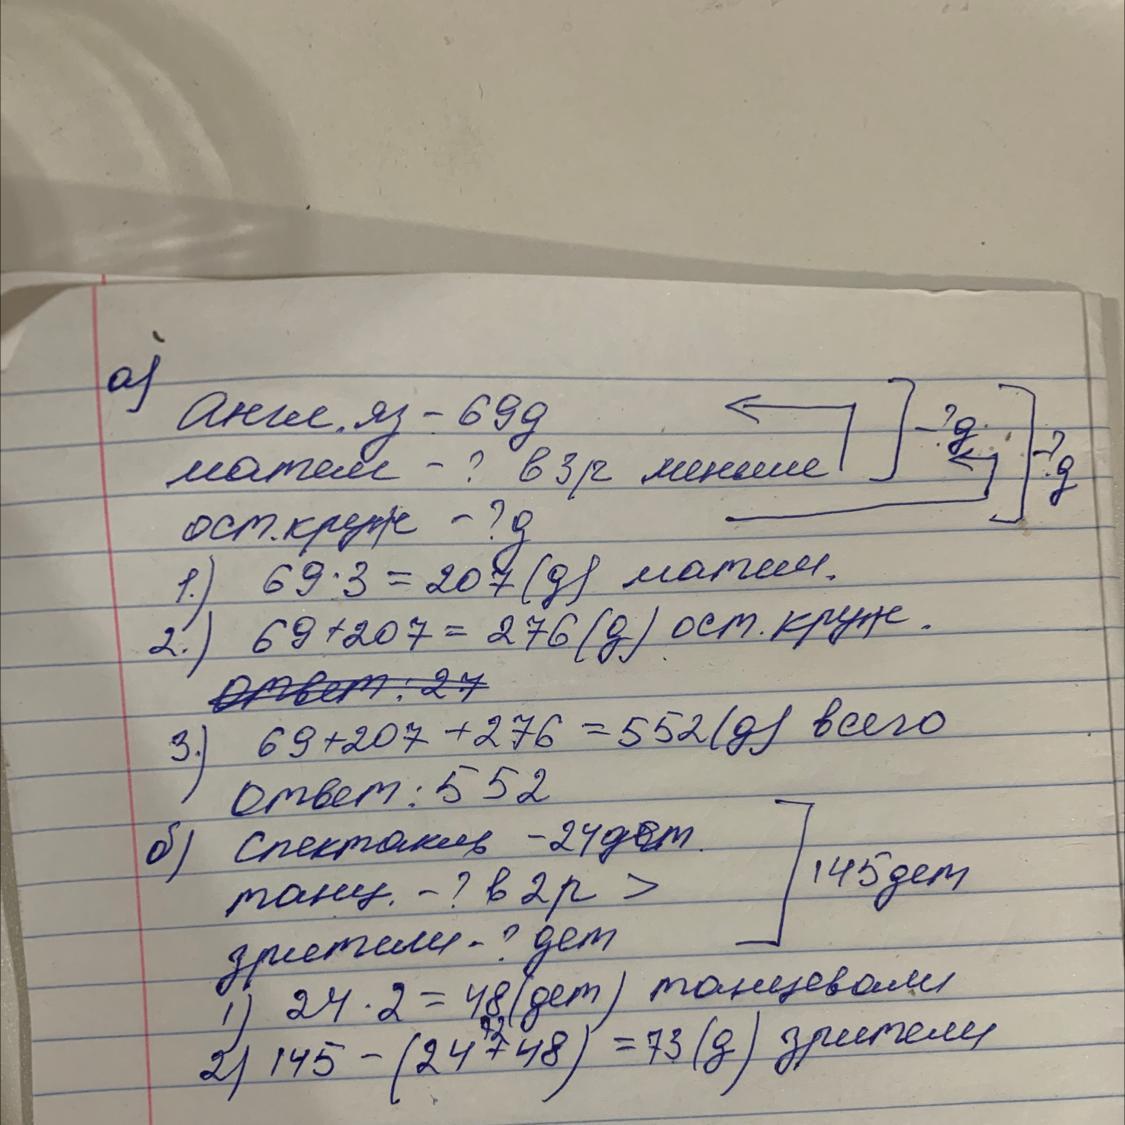 а)
Англ. яз - 69д
матем - ? в 3р меньше - ?д.
ост. круж - ?д - ?д
1.) 69·3 = 207(д) матем.
2.) 69+207 = 276(д) ост. круж.
Ответ: 27
3.) 69+207+276 = 552(д) всего
Ответ: 552
б) Спектакль - 24дет.
танц. - ? в 2р > 145дет
зрители - ? дет
1) 24·2 = 48(дет) танцевали
72
2) 145 - (24+48) = 73(д) зрители